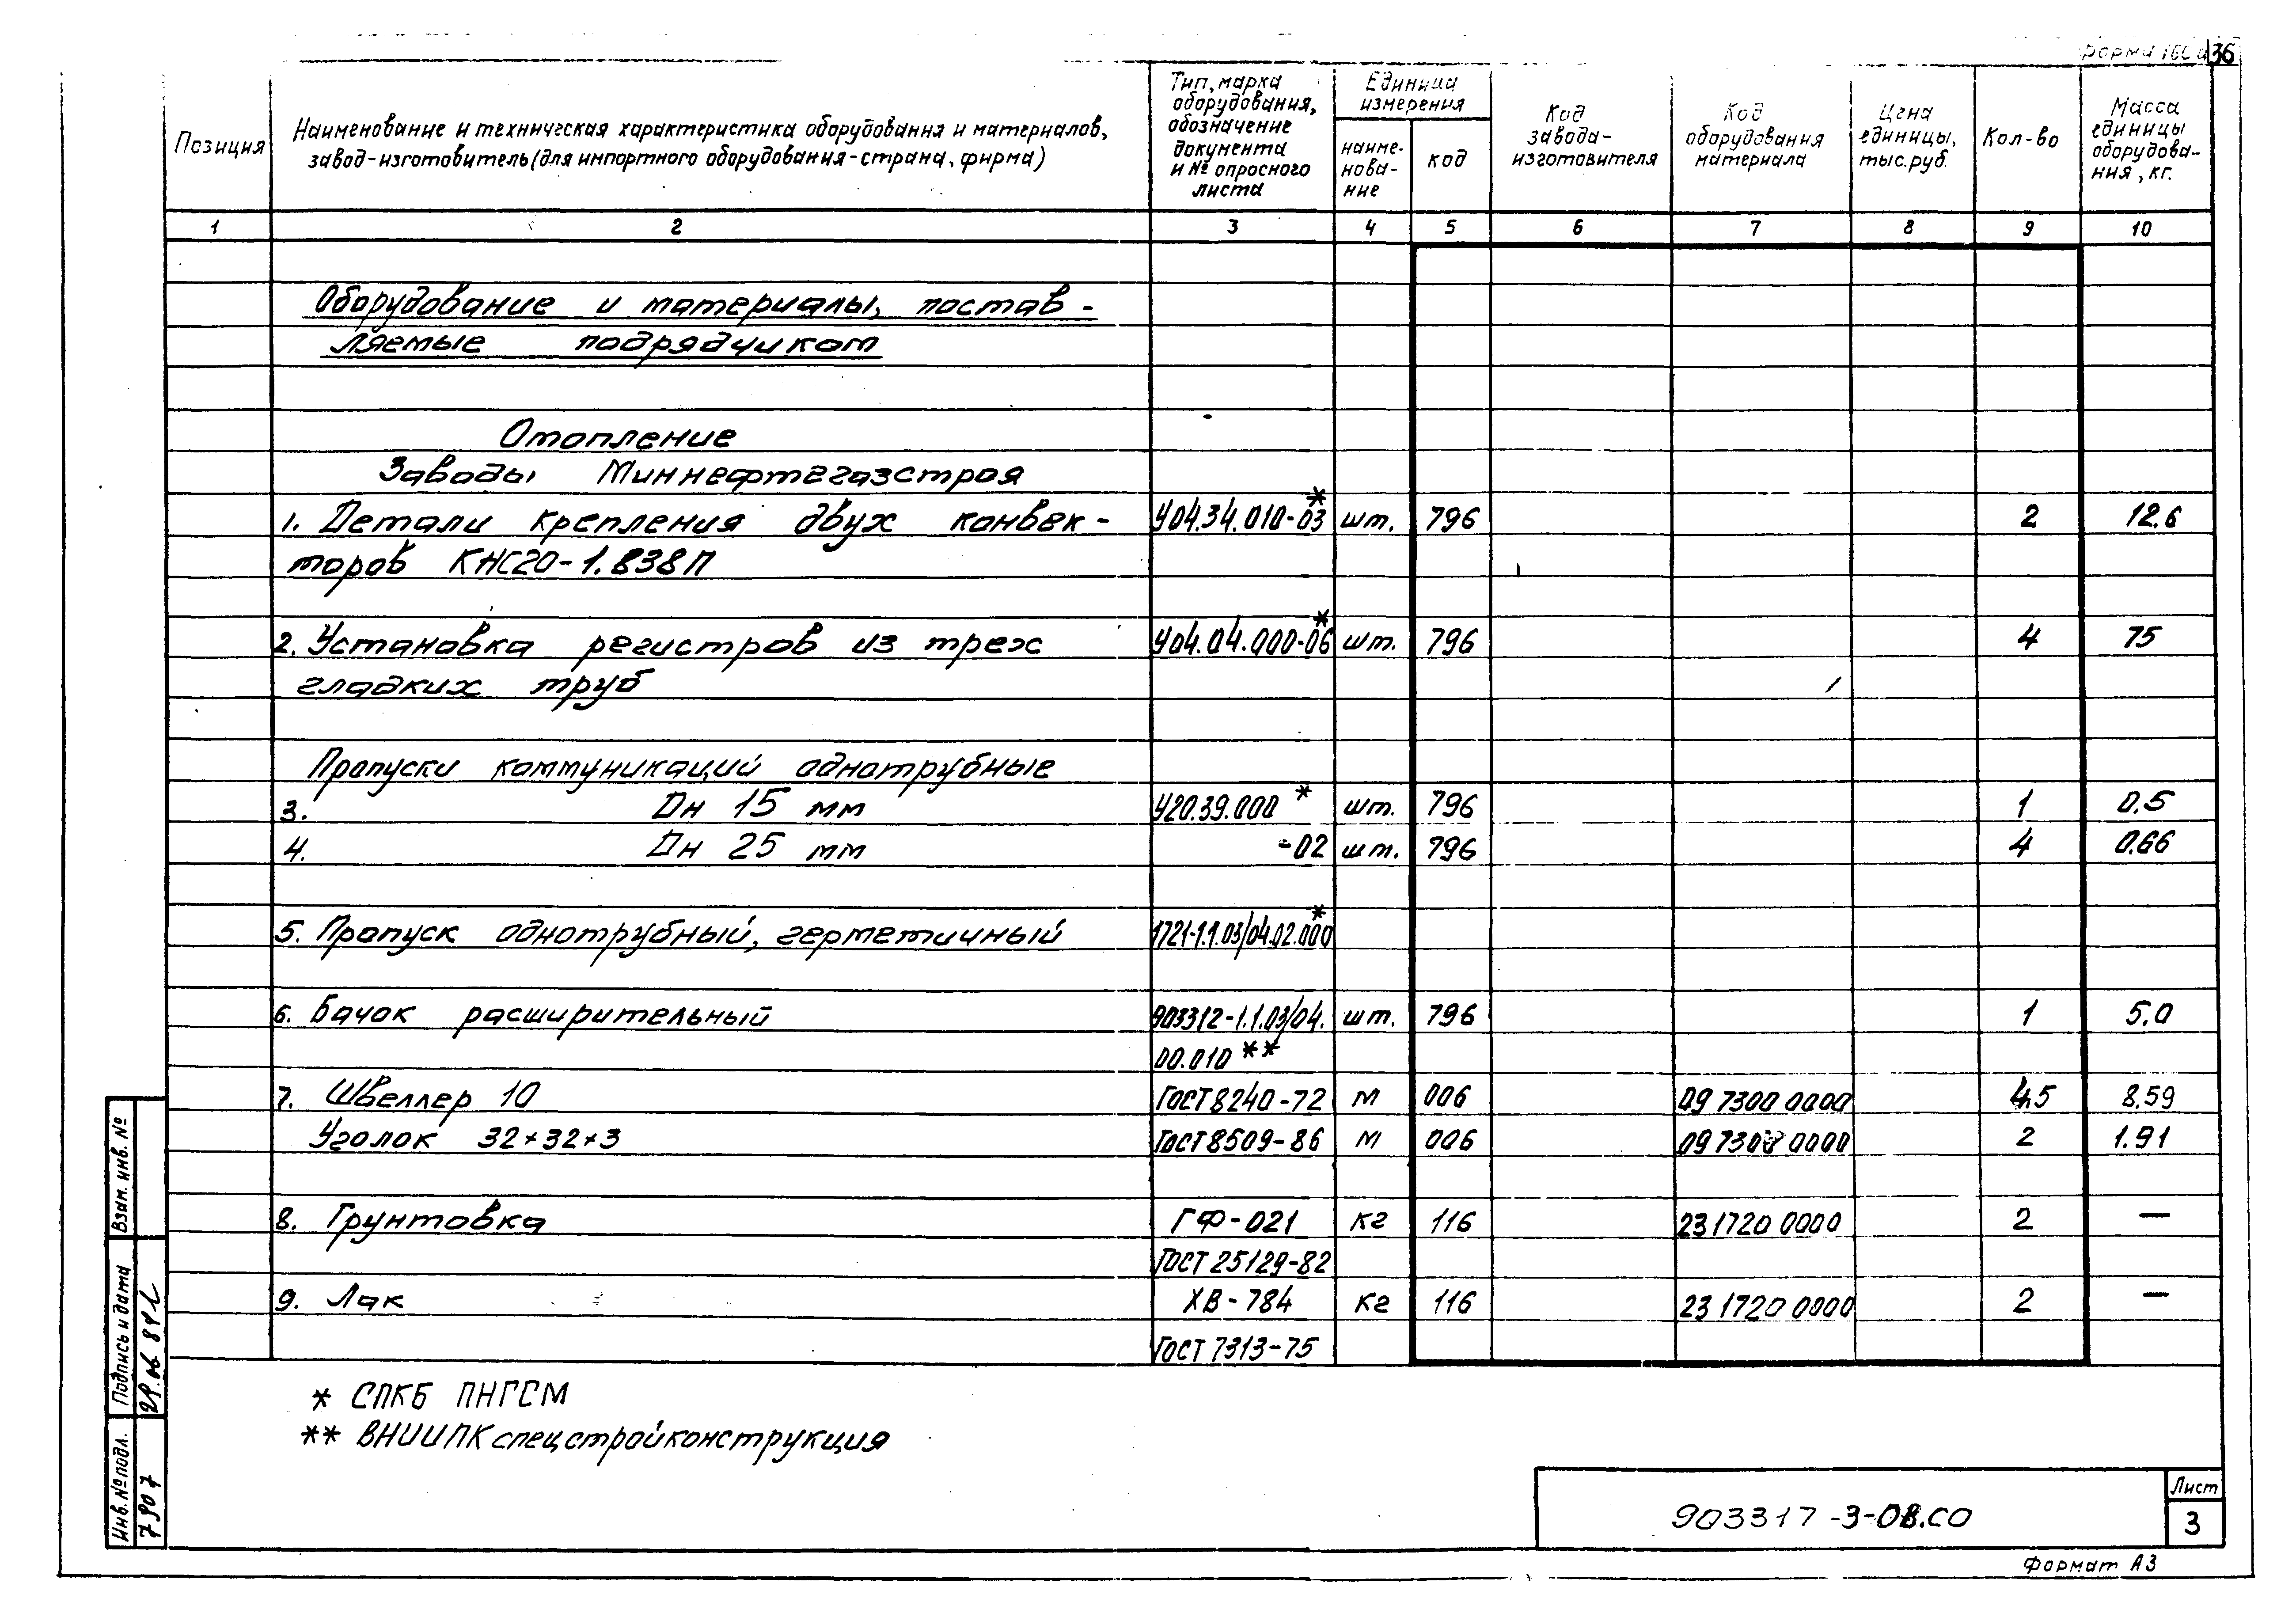 36
Позиция
Наименование и техническая характеристика оборудования и материалов,
завод-изготовитель (для импортного оборудования-страна, фирма)
Тип, марка
оборудования,
обозначение
документа
и № опросного
листа
Единица
измерения
наиме-
нова-
ние
код
Код
завода-
изготовителя
Код
оборудования
материала
Цена
единицы,
тыс.руб.
Кол-во
Масса
единицы
оборудова-
ния, кг.
1 2 3 4 5 6 7 8 9 10
Оборудование и материалы, постав-
ляемые подрядчиком
Отопление
Заводы Миннефтегазстроя
1. Детали крепления двух конвек- У04.34.010-03* шт. 796 2 12.6
торов КНС20-1.838П
2. Установка регистров из трех У04.04.000-06* шт. 796 4 75
гладких труб
Пропуски коммуникаций однотрубные
3. Дн 15 мм У20.39.000 * шт. 796 1 0.5
4. Дн 25 мм -02 шт. 796 4 0.66
5. Пропуск однотрубный, герметичный 1721-1.1.03/04.02.000*
6. Бачок расширительный 903312-1.1.03/04. шт. 796 1 5.0
00.010 **
7. Швеллер 10 ГОСТ 8240-72 м 006 09 7300 0000 4,5 8.59
Уголок 32×32×3 ГОСТ 8509-86 м 006 09 7300 0000 2 1.91
8. Грунтовка ГФ-021 кг 116 23 1720 0000 2 —
ГОСТ 25129-82
9. Лак ХВ-784 кг 116 23 1720 0000 2 —
ГОСТ 7313-75
* СПКБ ПНГСМ
** ВНИИПКспецстройконструкция
Взам. инв. №
Подпись и дата
Инв. № подл.
7907
903317-3-ОВ.СО
Лист
3
Формат А3